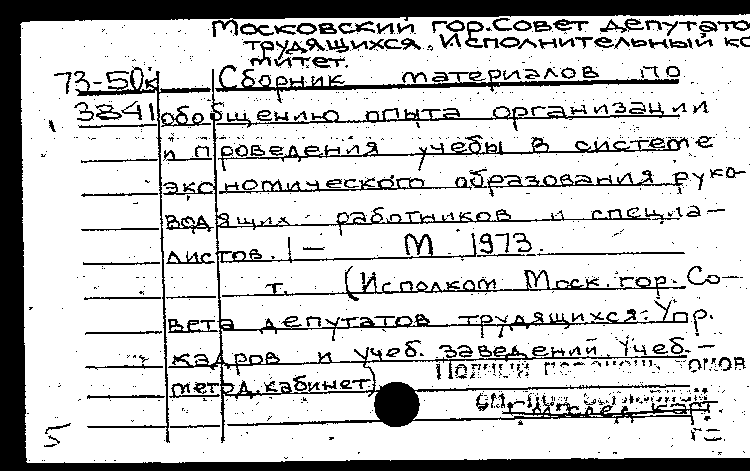 Московский гор. Совет депутато
трудящихся. Исполнительный ко
митет.
73-50к Сборник материалов по
3841 обобщению опыта организации
и проведения учебы в системе
экономического образования руко-
водящих работников и специа-
листов. 1— М 1973.
т. (Исполком Моск. гор. Со-
вета депутатов трудящихся. Упр.
кадров и учеб. заведений. Учеб.-
метод. кабинет)
Полный перечень томов
см. под
след. карт.
5